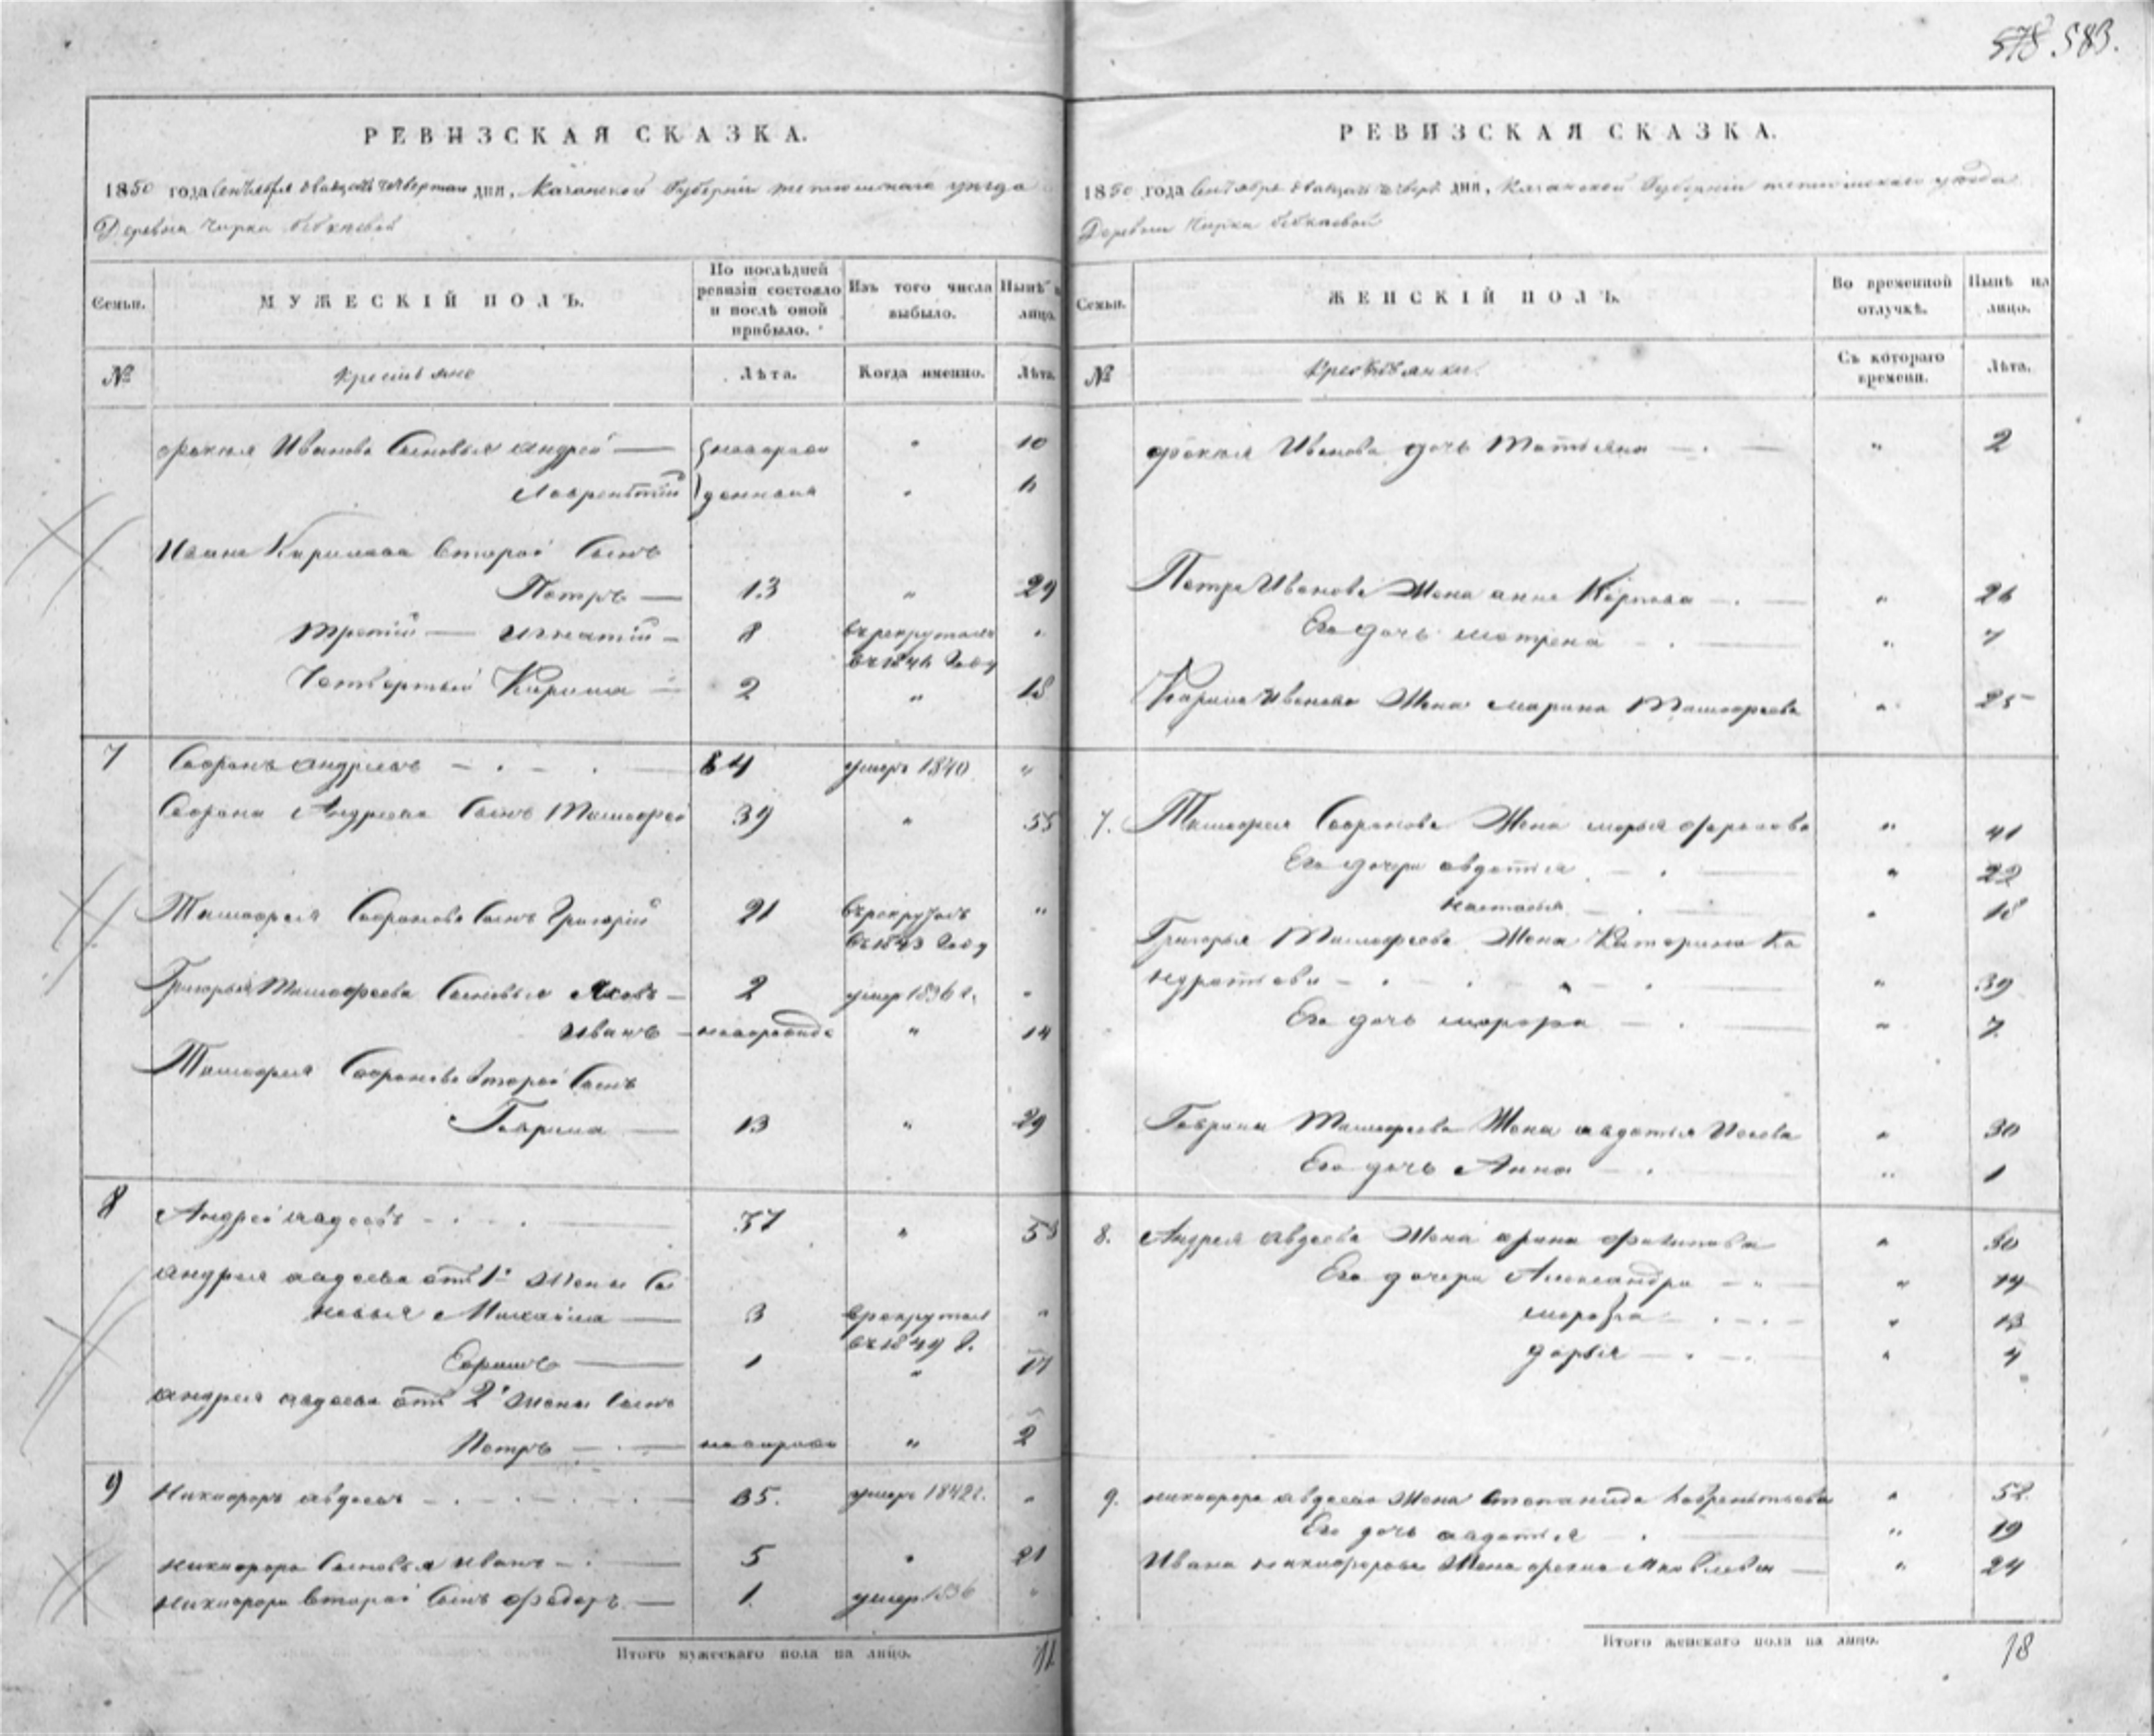 578. 583.
РЕВИЗСКАЯ СКАЗКА.
1850 года Сентября двадцать четвертаго дня, Казанской Губернии тетюшскаго уезда
Деревни Чирки
Семьи.
МУЖЕСКІЙ ПОЛЪ.
По послѣдней ревизіи состояло и послѣ оной прибыло.
Изъ того числа выбыло.
Нынѣ на лицо.
№
Крестьяне
Лѣта.
Когда именно.
Лѣта.
Фокия Иванова Сыновья андрей — новорож " 10
Лаврентий денныя " 6
Ивана Кирилова второй Сынъ
Петръ — 13 " 29
третий — игнатий — 8 в рекрутах "
въ 1846 Году
Четвертый Кирила — 2 " 18
7 Софронъ андреевъ — 64 умеръ 1840 "
Софрона Андреева Сынъ Тимофей 39 " 55
Тимофея Софронова Сынъ Григорий 21 въ рекрутах "
въ 1843 Году
Григорья Тимофеева Сыновья Яковъ — 2 умер 1836 г. "
Иванъ — новорожде " 14
Тимофея Софронова второй Сынъ
Гаврила — 13 " 29
8 Андрей авдеевъ 37 " 53
андрея авдеева отъ 1й жены Сы
новья Михайла — 3 в рекрутах "
въ 1849 г.
Ефимъ — 1 " 17
андрея авдеева отъ 2й жены Сынъ
Петръ — новорож " 2
9 Никифоръ авдеевъ 35. умеръ 1842 г. "
никифора Сыновья иванъ — 5 " 21
никифора второй Сынъ федоръ — 1. умер 1836 "
Итого мужескаго пола на лицо. 11
РЕВИЗСКАЯ СКАЗКА.
1850 года Сентября двадцать четвер. дня, Казанской Губернии тетюшскаго уезда
Деревни Чирки
Семьи.
ЖЕНСКІЙ ПОЛЪ.
Во временной отлучкѣ.
Нынѣ на лицо.
№
Крестьянки.
Съ котораго времени.
Лѣта.
фокия Иванова дочь Татьяна — " 2
Петра Иванова Жена анна Карпова — " 26
Его дочь матрена — " 7
Кирила Иванова Жена марина Тимофеева " 25
7. Тимофея Софронова Жена марья " 41
Его дочери авдотья — " 22
настасья — " 18
Григорья Тимофеева Жена Катерина Ко
ндратьева — " 39
Его дочь — " 7
Гаврила Тимофеева Жена авдотья " 30
Его дочь Анна — " 1
8. Андрея авдеева Жена арина " 30
Его дочери Александра — " 14
— " 13
дарья — " 4
9. никифора авдеева Жена Степанида Лаврентьева " 52
Его дочь авдотья — " 19
Ивана никифорова Жена Яковлева — " 24
Итого женскаго пола на лицо. 18